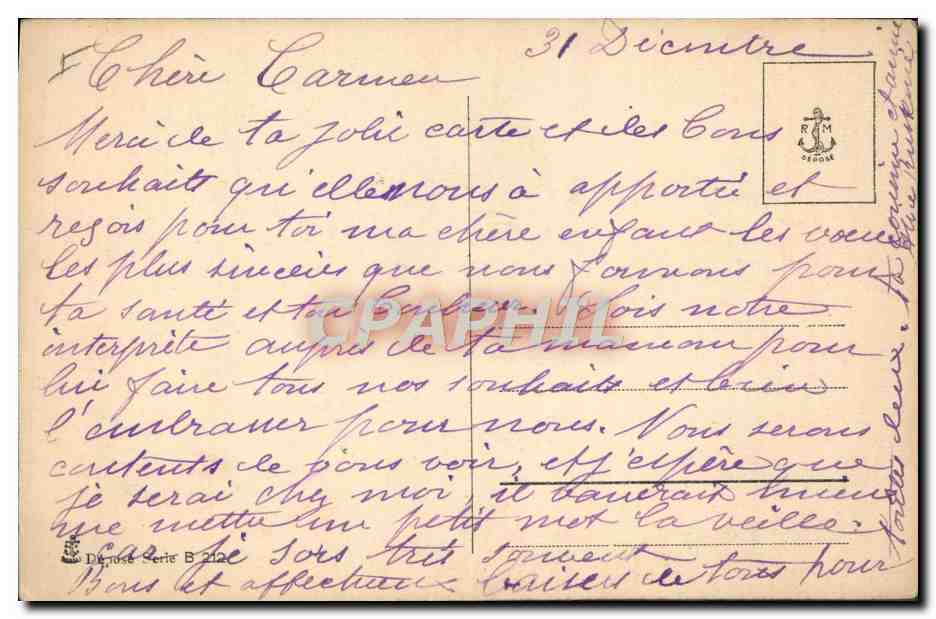 31 Décembre
Chère Carmen
Merci de ta jolie carte et des bons
souhaits qu'elle nous à apporté et
reçois pour toi ma chère enfant les voeux
les plus sincères que nous formons pour
ta santé et ton bonheur. Sois notre
interprète auprès de ta maman pour
lui faire tous nos souhaits et bien
l'embrasser pour nous. Nous serons
contents de vous voir, et j'espère que
je serai chez moi, il vaudrait mieux
me mettre un petit mot la veille.
car je sors très souvent
Bons et affectueux baisers de tous pour
toutes deux. ta
R M
DEPOSE
CPAPHIL
Déposé Serie B 212